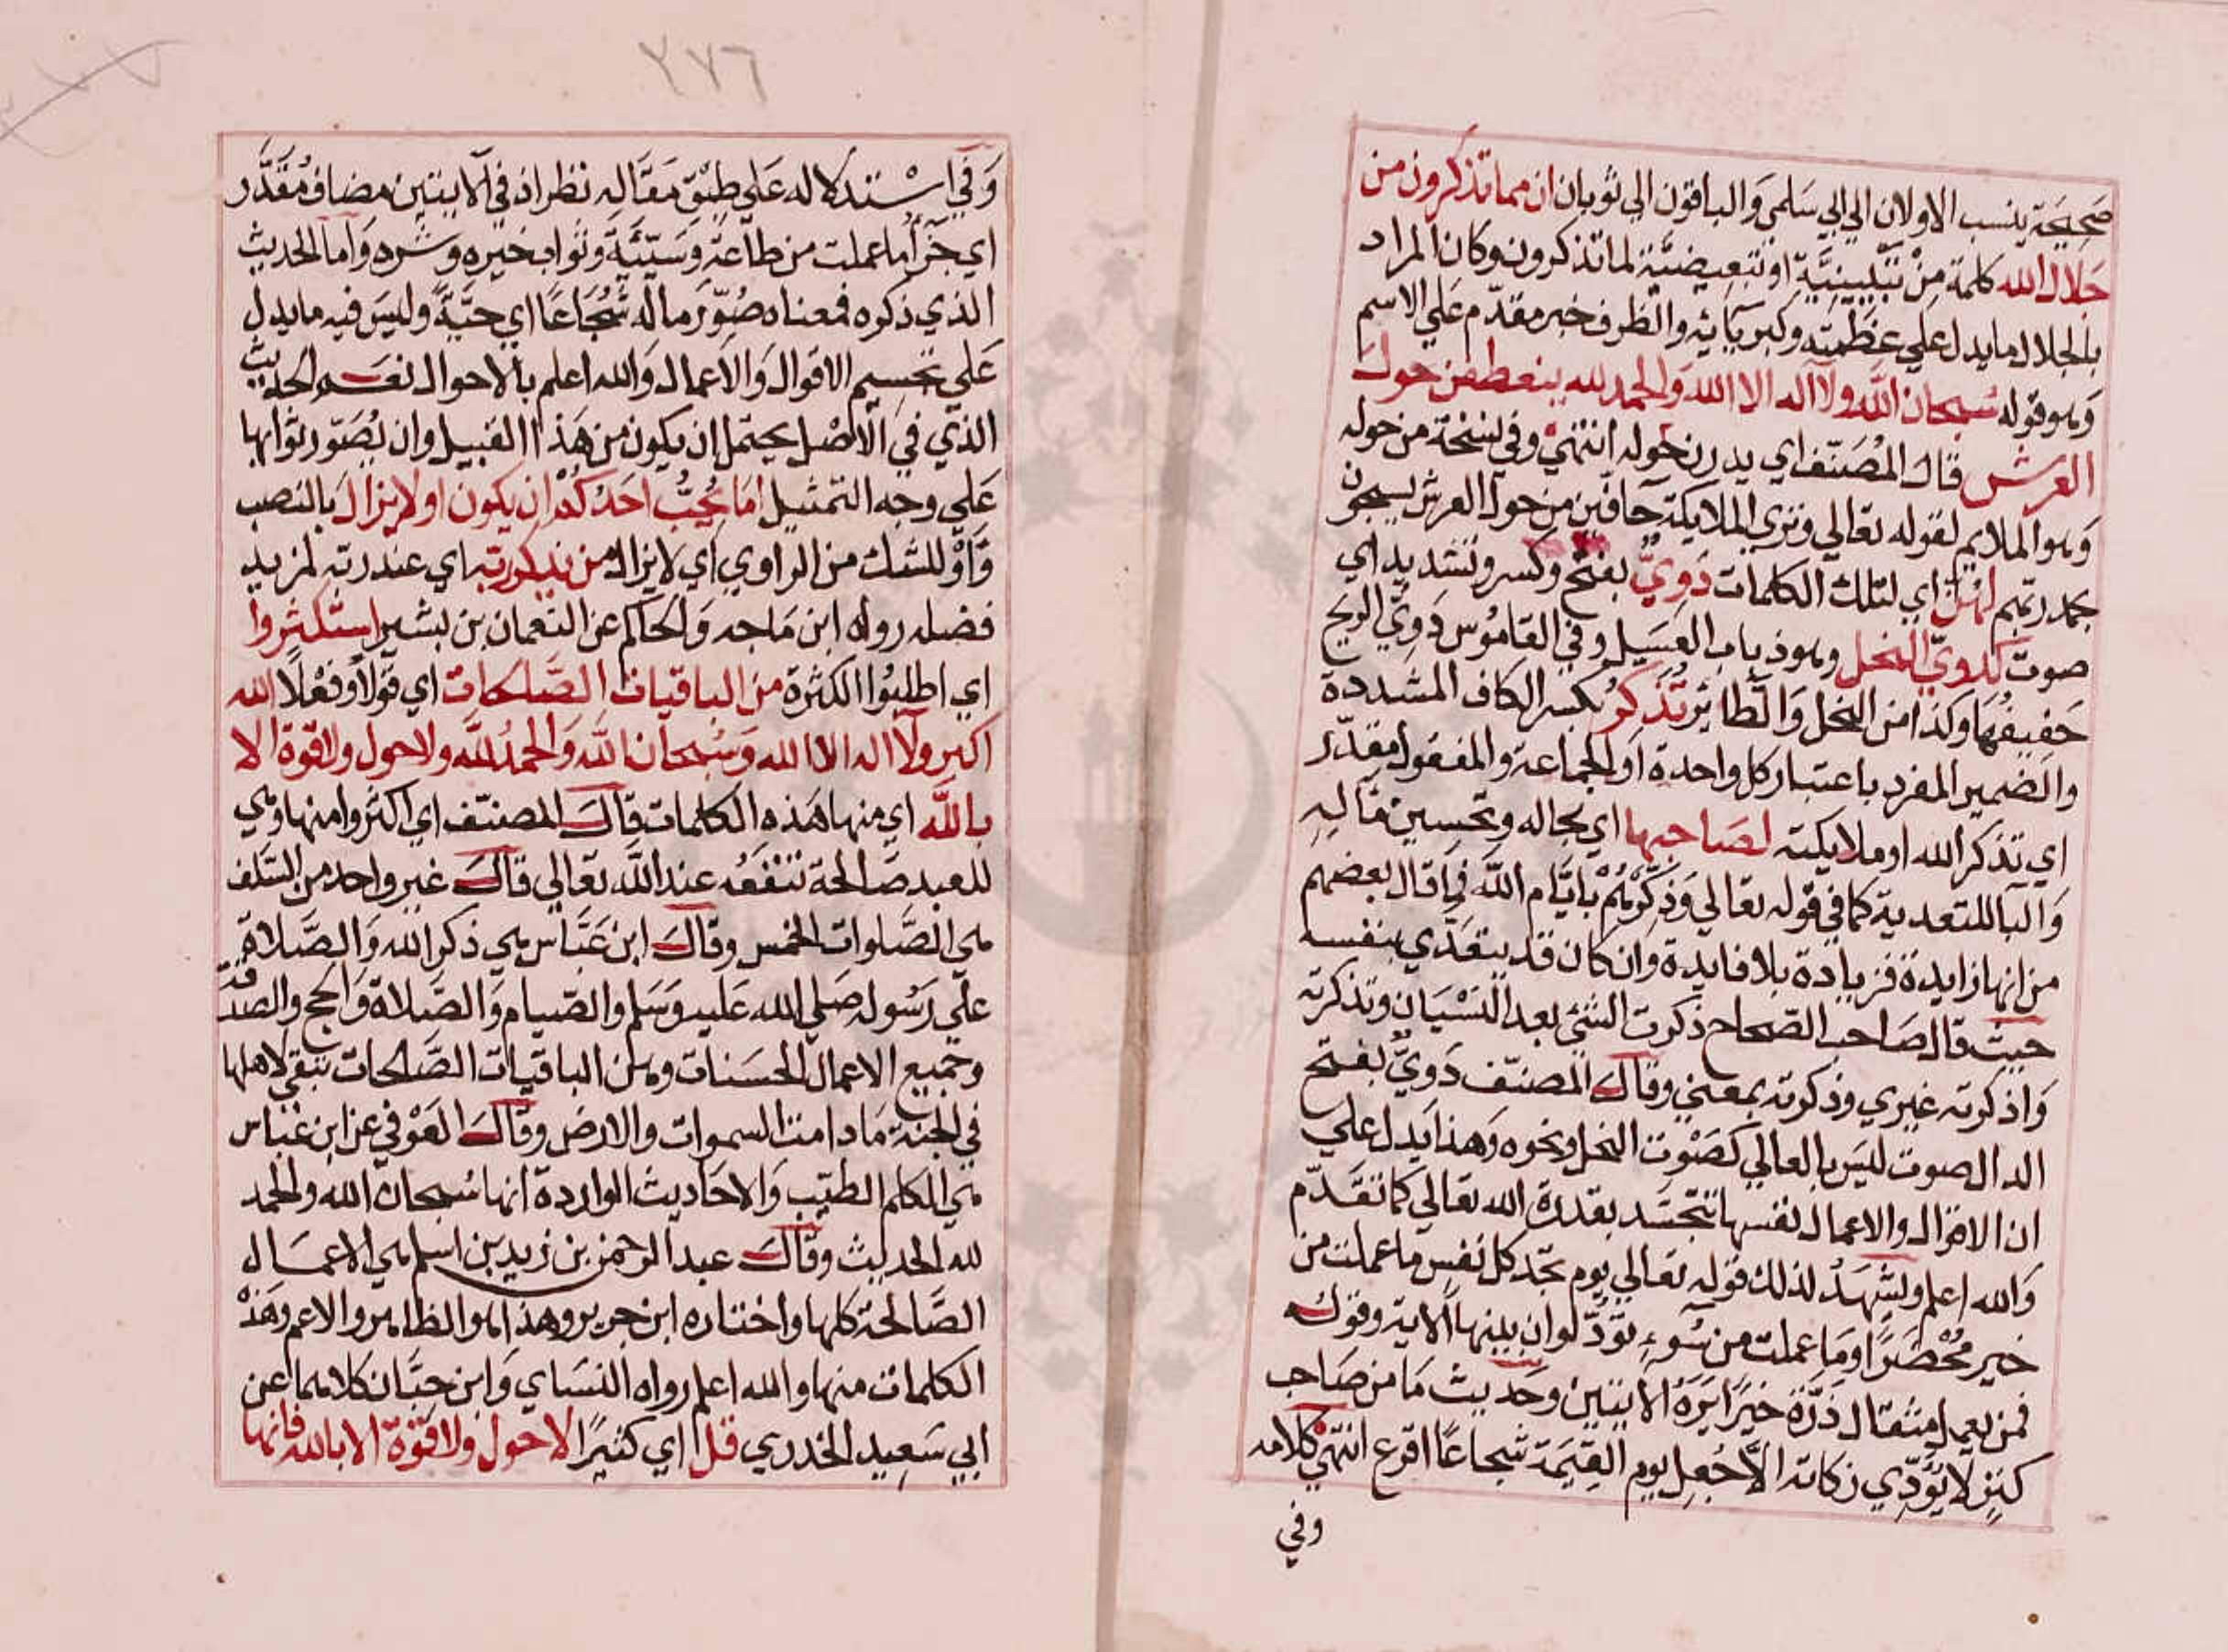 صحيحة ينسب الاولان الي ابي سلمى والباقون الي ثوبان ان مما تذكرون من
جلال الله كلمة من تبيينيّة او تبعيضيّة لما تذكرون وكان المراد
بالجلال ما يدل علي عظمته وكبريائه والظرف خبر مقدّم علي الاسم
وهو قوله سُبحان الله ولا اله الا الله والحمد لله ينعطفن حول
العرش قال المُصنّف اي يدرن حوله انتهيْ وفي نسخة من حوله
وهو الملايم لقوله تعالي وتري الملايكة حافّين من حول العرش يسبحون
بحمد ربهم لهنّ اي لتلك الكلمات دَويّ بفتح وكسر وتشديد اي
صوت كدويّ النحل وهو ذباب العسيل وفي القامُوس دَوِيّ الريح
حَفيفُها وكذا من النحل وَالطّائر تُذَكِرُ بكسر الكاف المشددة
والضمير المفرد باعتبار كل واحدة او الجماعة والمفعول مقدّر
اي تذكر الله او ملايكته لصاحبها اي بحاله وتحسين مقاله
وَالبا للتعدية كما في قوله تعالي وَذَكِّرهُمْ بايّام اللّه فما قال بعضهم
من انها زايدة فزيادة بلا فايدة وان كان قد يتعَدّي بنفسه
حيث قال صاحب الصّحاح ذكرت الشئ بعد النسْيَان وتذكرته
وَاذكرته غيري وذكرته بمعني وقال المصنّف دَويُّ بفتح
الدال صوت ليسَ بالعالي كصَوْت النحل ونحوه وَهذا يَدل علي
ان الاقوال والاعمال نفسها تتجسّد بقدرة الله تعالي كما تقدّم
وَالله اعلم ويشهَدُ لذلك قوله تعالي يوم تجد كل نفس ما عملت من
خير مُحْضَرًا وما عملت من سُوءٍ تودّ لو ان بينها الاية وقوله
فمن يعمل مثقال ذرّة خيرًا يَرَهُ الايتين وحديث مَا من صَاحب
كنزٍ لا يُؤدّي زكاته الّا جُعِل يوم القيٰمة شجاعًا اقرع انتهيْ كلامه
وفي
٢٧٦
وَفي اسْتدلاله عَلي طبْق مقَاله نظر اذ في الايتين مضاف مُقَدَّر
اي جزَآء ما عملت من طاعَة وَسَيّئَة وثواب خيره وشره وَاما الحديث
الذي ذكره فمعناه صُوّر ماله شُجَاعًا اي حَيّةً وليسَ فيه ما يدل
عَلي تجسيم الاقوال وَالاعمال وَالله اعلم بالاحوال نعَم الحديث
الذي في الاصْل يحتمل ان يكون من هَذا القبيل وان يُصَوّر ثوابها
عَلي وجه التمثيل امَا يُحِبُّ احَدُكُمْ ان يكون اولا يزال بالنصب
وَاوْ للشك من الراوي اي لا يزال من يذكر ربه اي عند ربّه لمزيد
فضله رواه ابن مَاجه وَالحاكم عن النعمان بن بشير استكثروا
اي اطلبُوا الكثرة من الباقيات الصّالحات اي قولًا وفعْلًا الله
اكبر ولا اله الا الله وسُبحان اللّه وَالحمدُ للّه ولا حول ولا قوة الا
باللّه اي منها هَذه الكلمات قال المصنّف اي اكثروا منها وهي
للعبد صَالحة تنْفَعُه عند اللّه تعَالي قال غير واحد من السّلف
هي الصَّلوات الخمس وقال ابن عَبّاس هي ذكر الله وَالصَّلاة
علي رَسُوله صَلي الله عَليه وَسَلم والصّيام وَالصّلاة وَالحج والصّدقة
وجَميع الاعمال الحسَنات وهن الباقيات الصَّالحات تبقي لاهلها
في الجنّة مَا دامت السموات والارض وقال العَوْفي عن ابن عَبّاس
هي الكلم الطيّب وَالاحَاديث الواردة انها سُبحان الله والحمد
لله الحديث وقال عبد الرحمن بن زيد بن اسلم هي الاعمَال
الصَّالحة كلها واختاره ابن جرير وهذا هو الظاهر والاعم وَهَذه
الكلمات منها والله اعلم رواه النسَاي وَابن حِبَّان كلاهما عن
ابي سَعِيد الخدري قل اي كثيرًا لا حول ولا قوّة الا بالله فانها